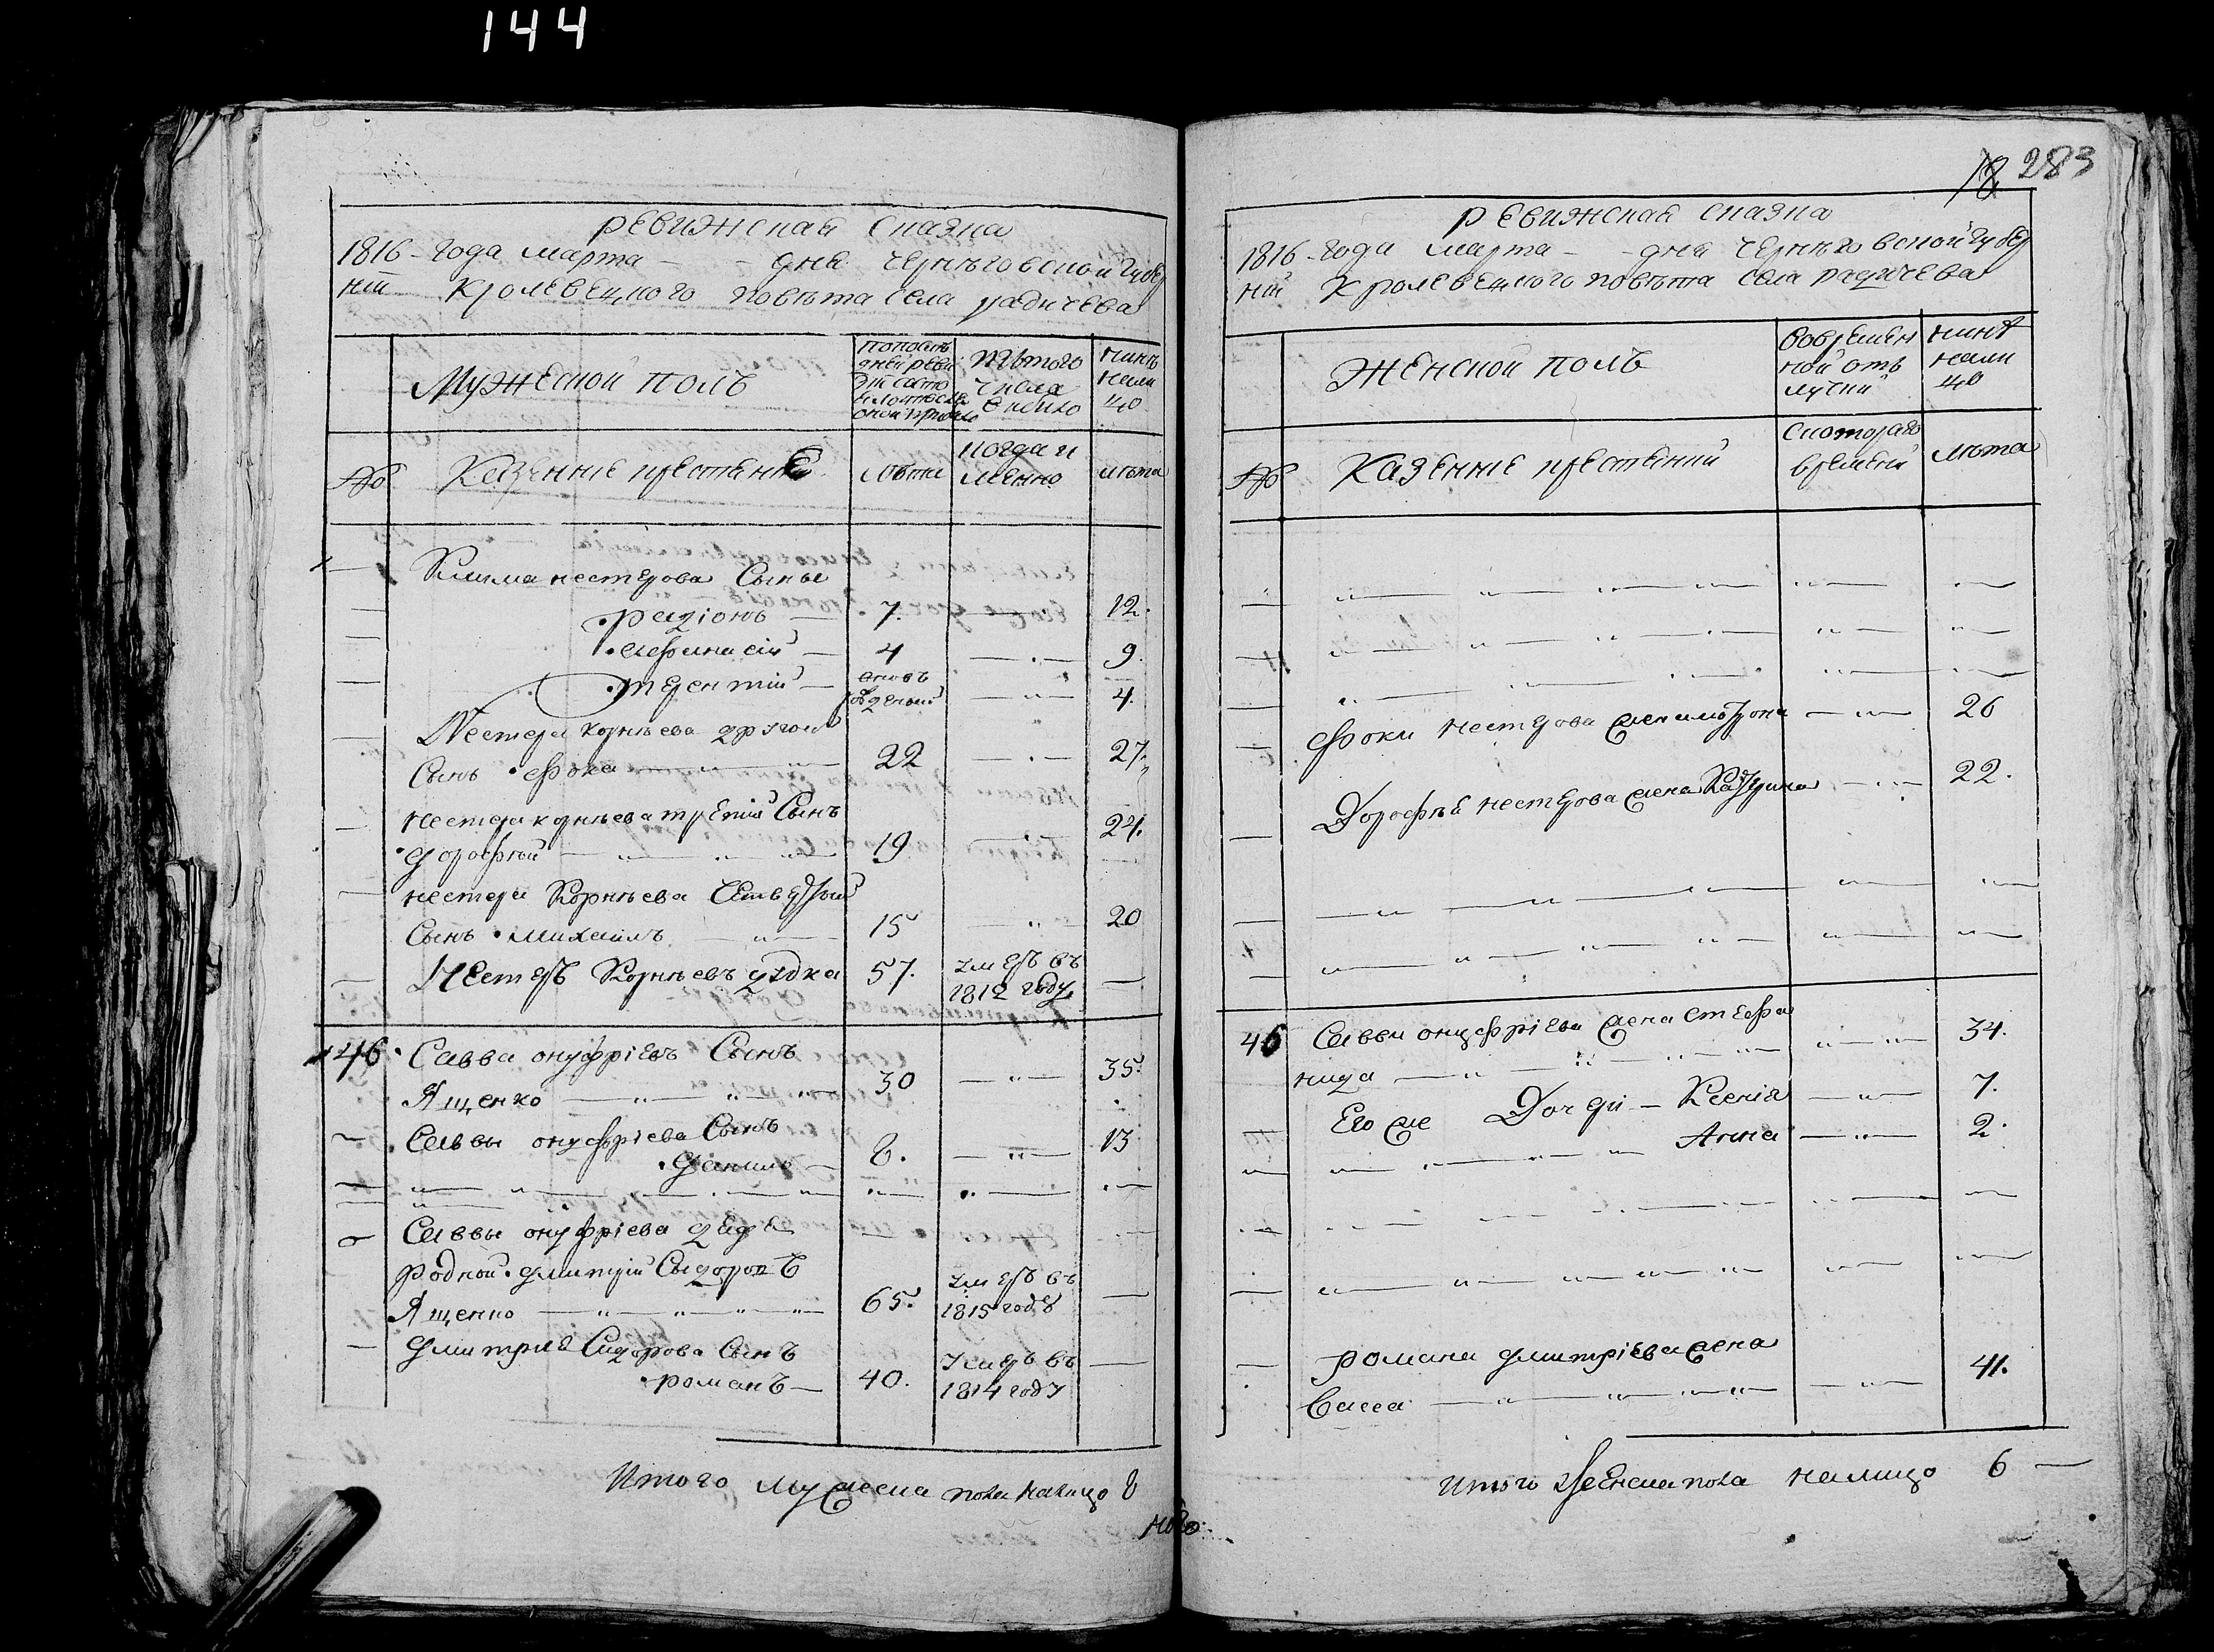 144
ревижская сказка
1816 года марта - - дня черниговской губер
нiи Кролевецкого повѣта села радичева
Мужеской полъ
по послѣ
дней реви
зiи состо
изъ того
числа
выбыло
нинѣ
нали
цо
№
Казенние крестяне
лѣта
когда и
менно
лѣта
Клима нестерова Сыны
радiонъ — 7. — 12.
афанасiй — 4 — 9.
терентiй — вновь
рожденый — 4.
Нестера корнѣева другой
Сынъ фока — 22 — 27.
нестера корнѣева третiй Сынъ
дорофѣй — 19 — 24.
нестера Корнѣева Четвертый
Сынъ михаилъ — 15 — 20
Нестеръ Корнѣевъ дудка 57. умеръ въ
1812 году —
46 Савва онуфрiевъ Сынъ
Ященко — 30 — 35.
Саввы онуфрiева Сынъ
данило — 8. — 13
Саввы онуфрiева дядя
родной дмитрiй Сыдоровъ
Ященко — 65. умеръ въ
1815 году —
дмитрия Сидорова Сынъ
романъ — 40. умеръ въ
1814 году —
Итого мужеска пола налицо 8
18 283
ревижская сказка
1816 года марта - - дня черниговской губер
нiи Кролевецкого повѣта села радичева
Женской полъ
Вовремен
ной отъ
лучки
нинѣ
нали
цо
№
Казенние крестянки
Скоторого
времени
лѣта
фоки нестерова жена мотрона — 26
Дорофѣя нестерова жена Катерина — 22.
46 Саввы онуфрiева жена стефа
нида — 34.
Его же Дочери — Ксенiя — 7.
Анна — 2.
романа дмитрiева жена
Васса — 41.
Итого женска пола налицо 6 —